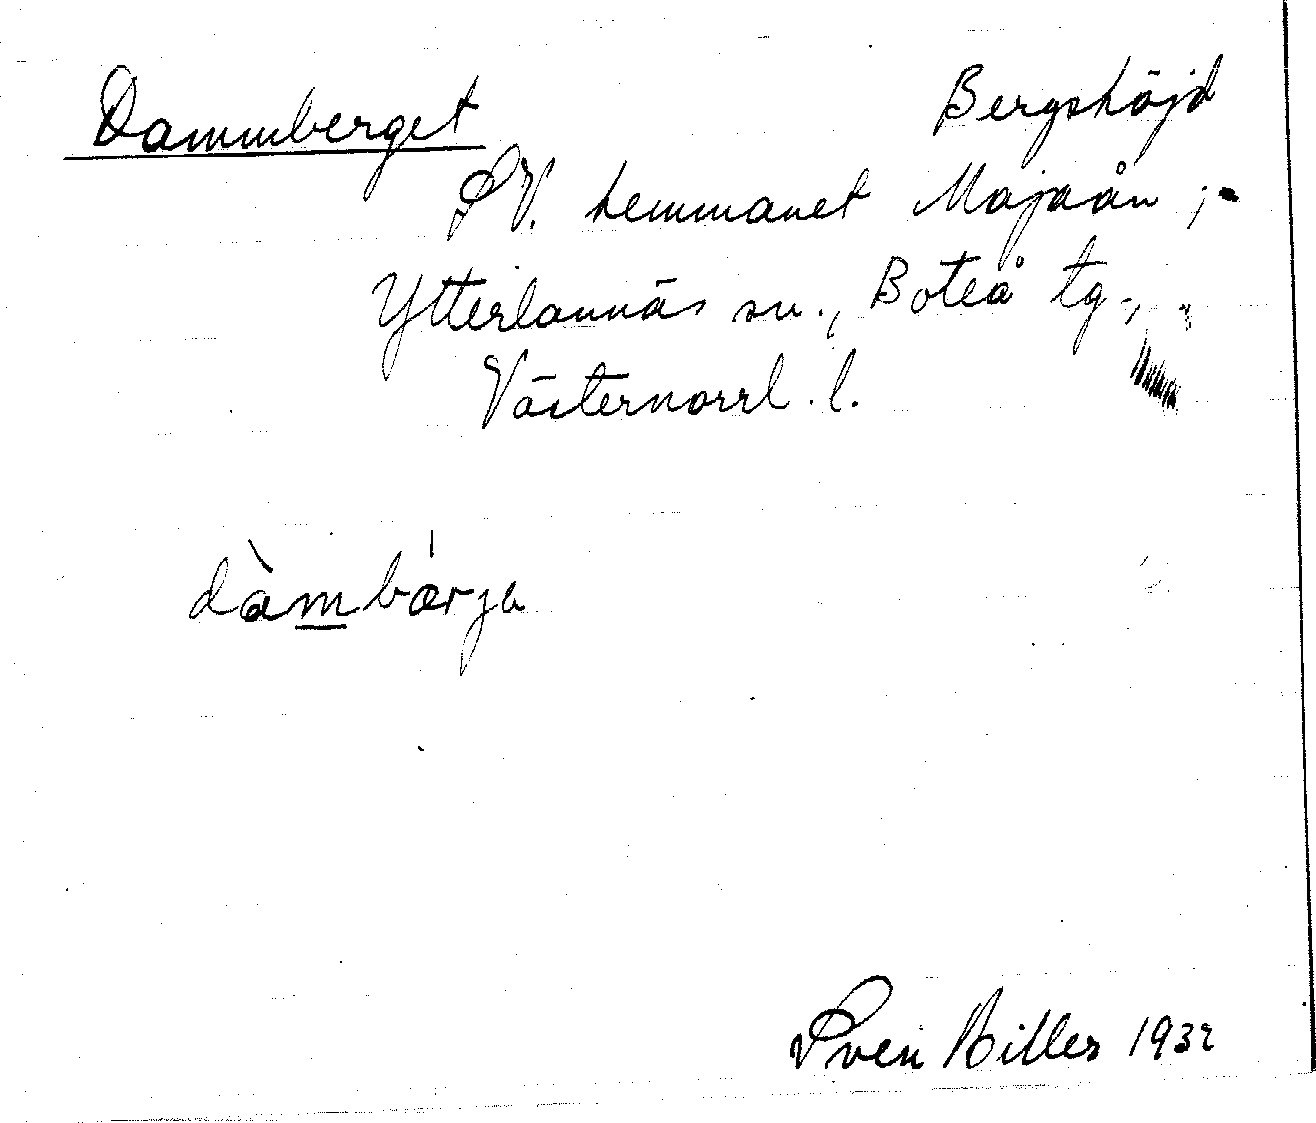 Dammberget Bergshöjd
SV. hemmanet Majaån,
Ytterlännäs sn., Boteå tg.,
Västernorrl. l.
dàmbǽrja
Sven Hiller 1932